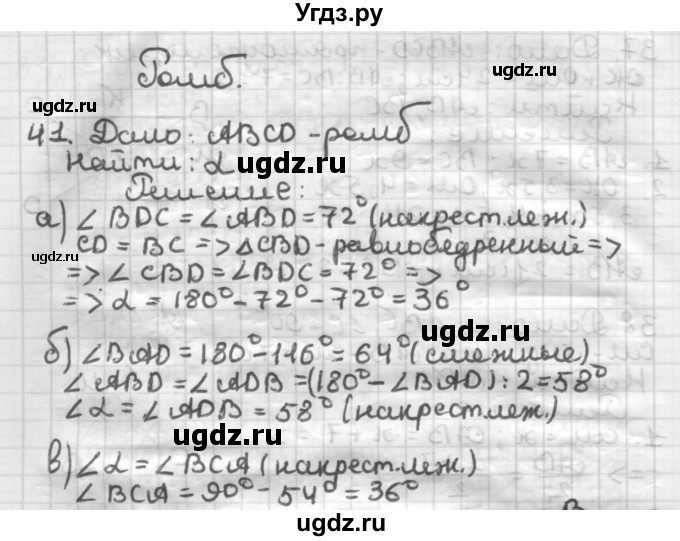 Угдз.ру
Ромб.
ugdz.ru
41. Дано: ABCD - ромб
Найти: α
ugdz.ru
Решение:
а) ∠ BDC = ∠ ABD = 72° (накрест.леж.)
CD = BC => △CBD - равнобедренный =>
=> ∠ CBD = ∠BDC = 72° =>
=> α = 180° - 72° - 72° = 36°
ugdz.ru
б) ∠BAD = 180° - 116° = 64° (смежные)
∠ ABD = ∠ ADB = (180° - ∠ BAD) : 2 = 58°
∠α = ∠ ADB = 58° (накрест.леж.)
ugdz.ru
в) ∠α = ∠ BCA (накрест.леж.)
∠ BCA = 90° - 54° = 36°
ugdz.ru